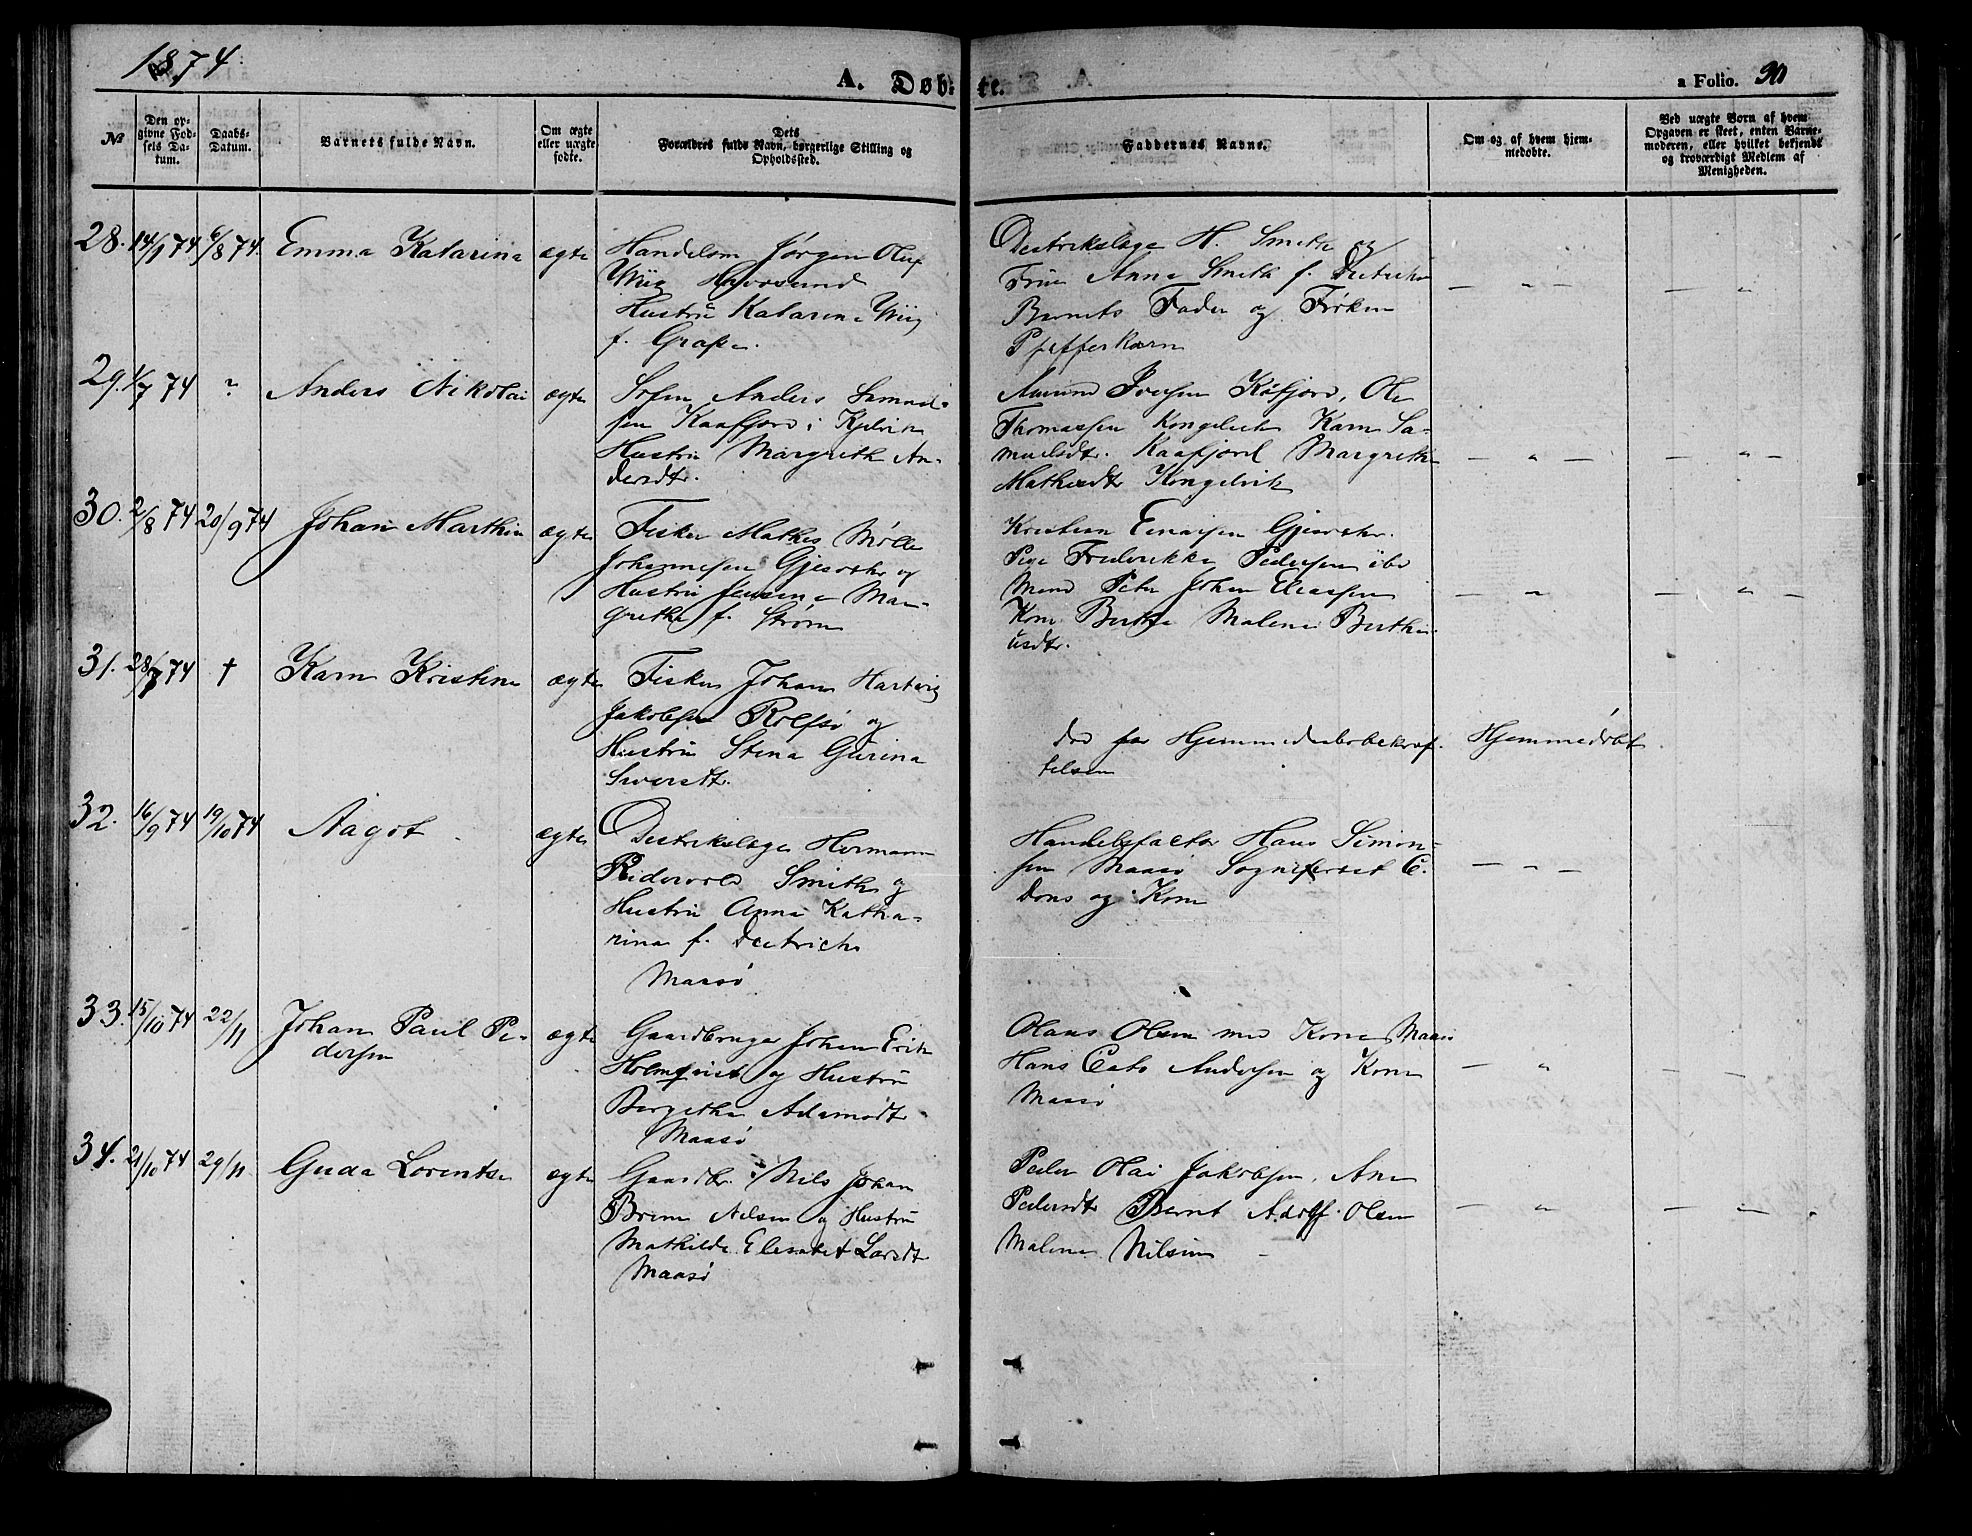 1874
A. Døb-
te.
a Folio. 30
№
Den op-
givne Fød-
sels Da-
tum.
Daabs-
Datum.
Barnets fulde Navn.
Om ægte
eller uægte
fødte.
Dets
Forældres fulde Navn, borgerlige Stilling og
Opholdssted.
Faddernes Navne.
Om og af hvem hjem-
medøbte.
Ved uægte Børn af hvem
Opgaven er skeet, enten Barne-
moderen, eller hvilket bekjendt
og troværdigt Medlem af
Menigheden.
28. 14/1 74 6/8 74. Emma Katarina ægte
Handelsm Jørgen Oluf
Wiig Havøsund
Hustru Katarina Wiig
f. Grape.
Destrikslæge H. Smith og
Frue Anna Smith f. Dietrichs
Barnets Fader og Frøken
Pfefferkorn
— " — — "
29. 1/7 74 ? Anders Nikolai ægte
Anders Samuel-
sen Kaafjord i Kjelvik
Hustru Margrethe An-
dersdtr.
Amund Kåfjord, Ole
Thomassen Kongelvik Karn Sa-
muelsdtr. Kaafjord Margrethe
Mathisdtr Kongelvik
— " — — " —
30. 2/8 74 20/9 74 Johan Marthin ægte
Fisker Mathis Møller
Johannesen Gjesvær og
Hustru Jensina Mar-
gretha f. Strøm
Kristian Einarsen Gjesvær.
Pige Frederikke Pedersen ibd
Mand Peter Johan Eliassen
Kone Malene Berthe-
usdtr.
— " — — " —
31. 28/7 74 † Karn Kristine ægte
Fisker Johan Hartvig
Jakobsen Rolfsø og
Hustru Stina Gurina
Siversdtr.
død før Hjemmedaabsbekræf-
telsen
Hjemmedøbt
32. 16/9 74 19/10 74 Aagot ægte
Destrikslæge Hermann
Ridervold Smith og
Hustru Anna Katha-
rina f. Dietrichs
Maasø
Handelsfactor Hans Simon-
sen Maasø Sogneprest C.
Dons og Kone
— " —
33. 15/10 74 22/11 Johan Paul Pe-
dersen
ægte
Gaardbruger Johan Erik
Holmqvist og Hustru
Bergitha Adamsdtr
Maasø
Olaus Olsen med Kone Maasø
Hans Andersen og Kone
Maasø
— " — —
34. 21/10 74 29/11 Guda Lorentse ægte
Gaardbr. Nils Johan
Brun Nilsen og Hustru
Mathilde Elesabet Larsdtr
Maasø
Peder Olai Jakobsen, Ane
Pedersdtr Bernt Adolf Olsen
Malene Nilsen
— " — — "